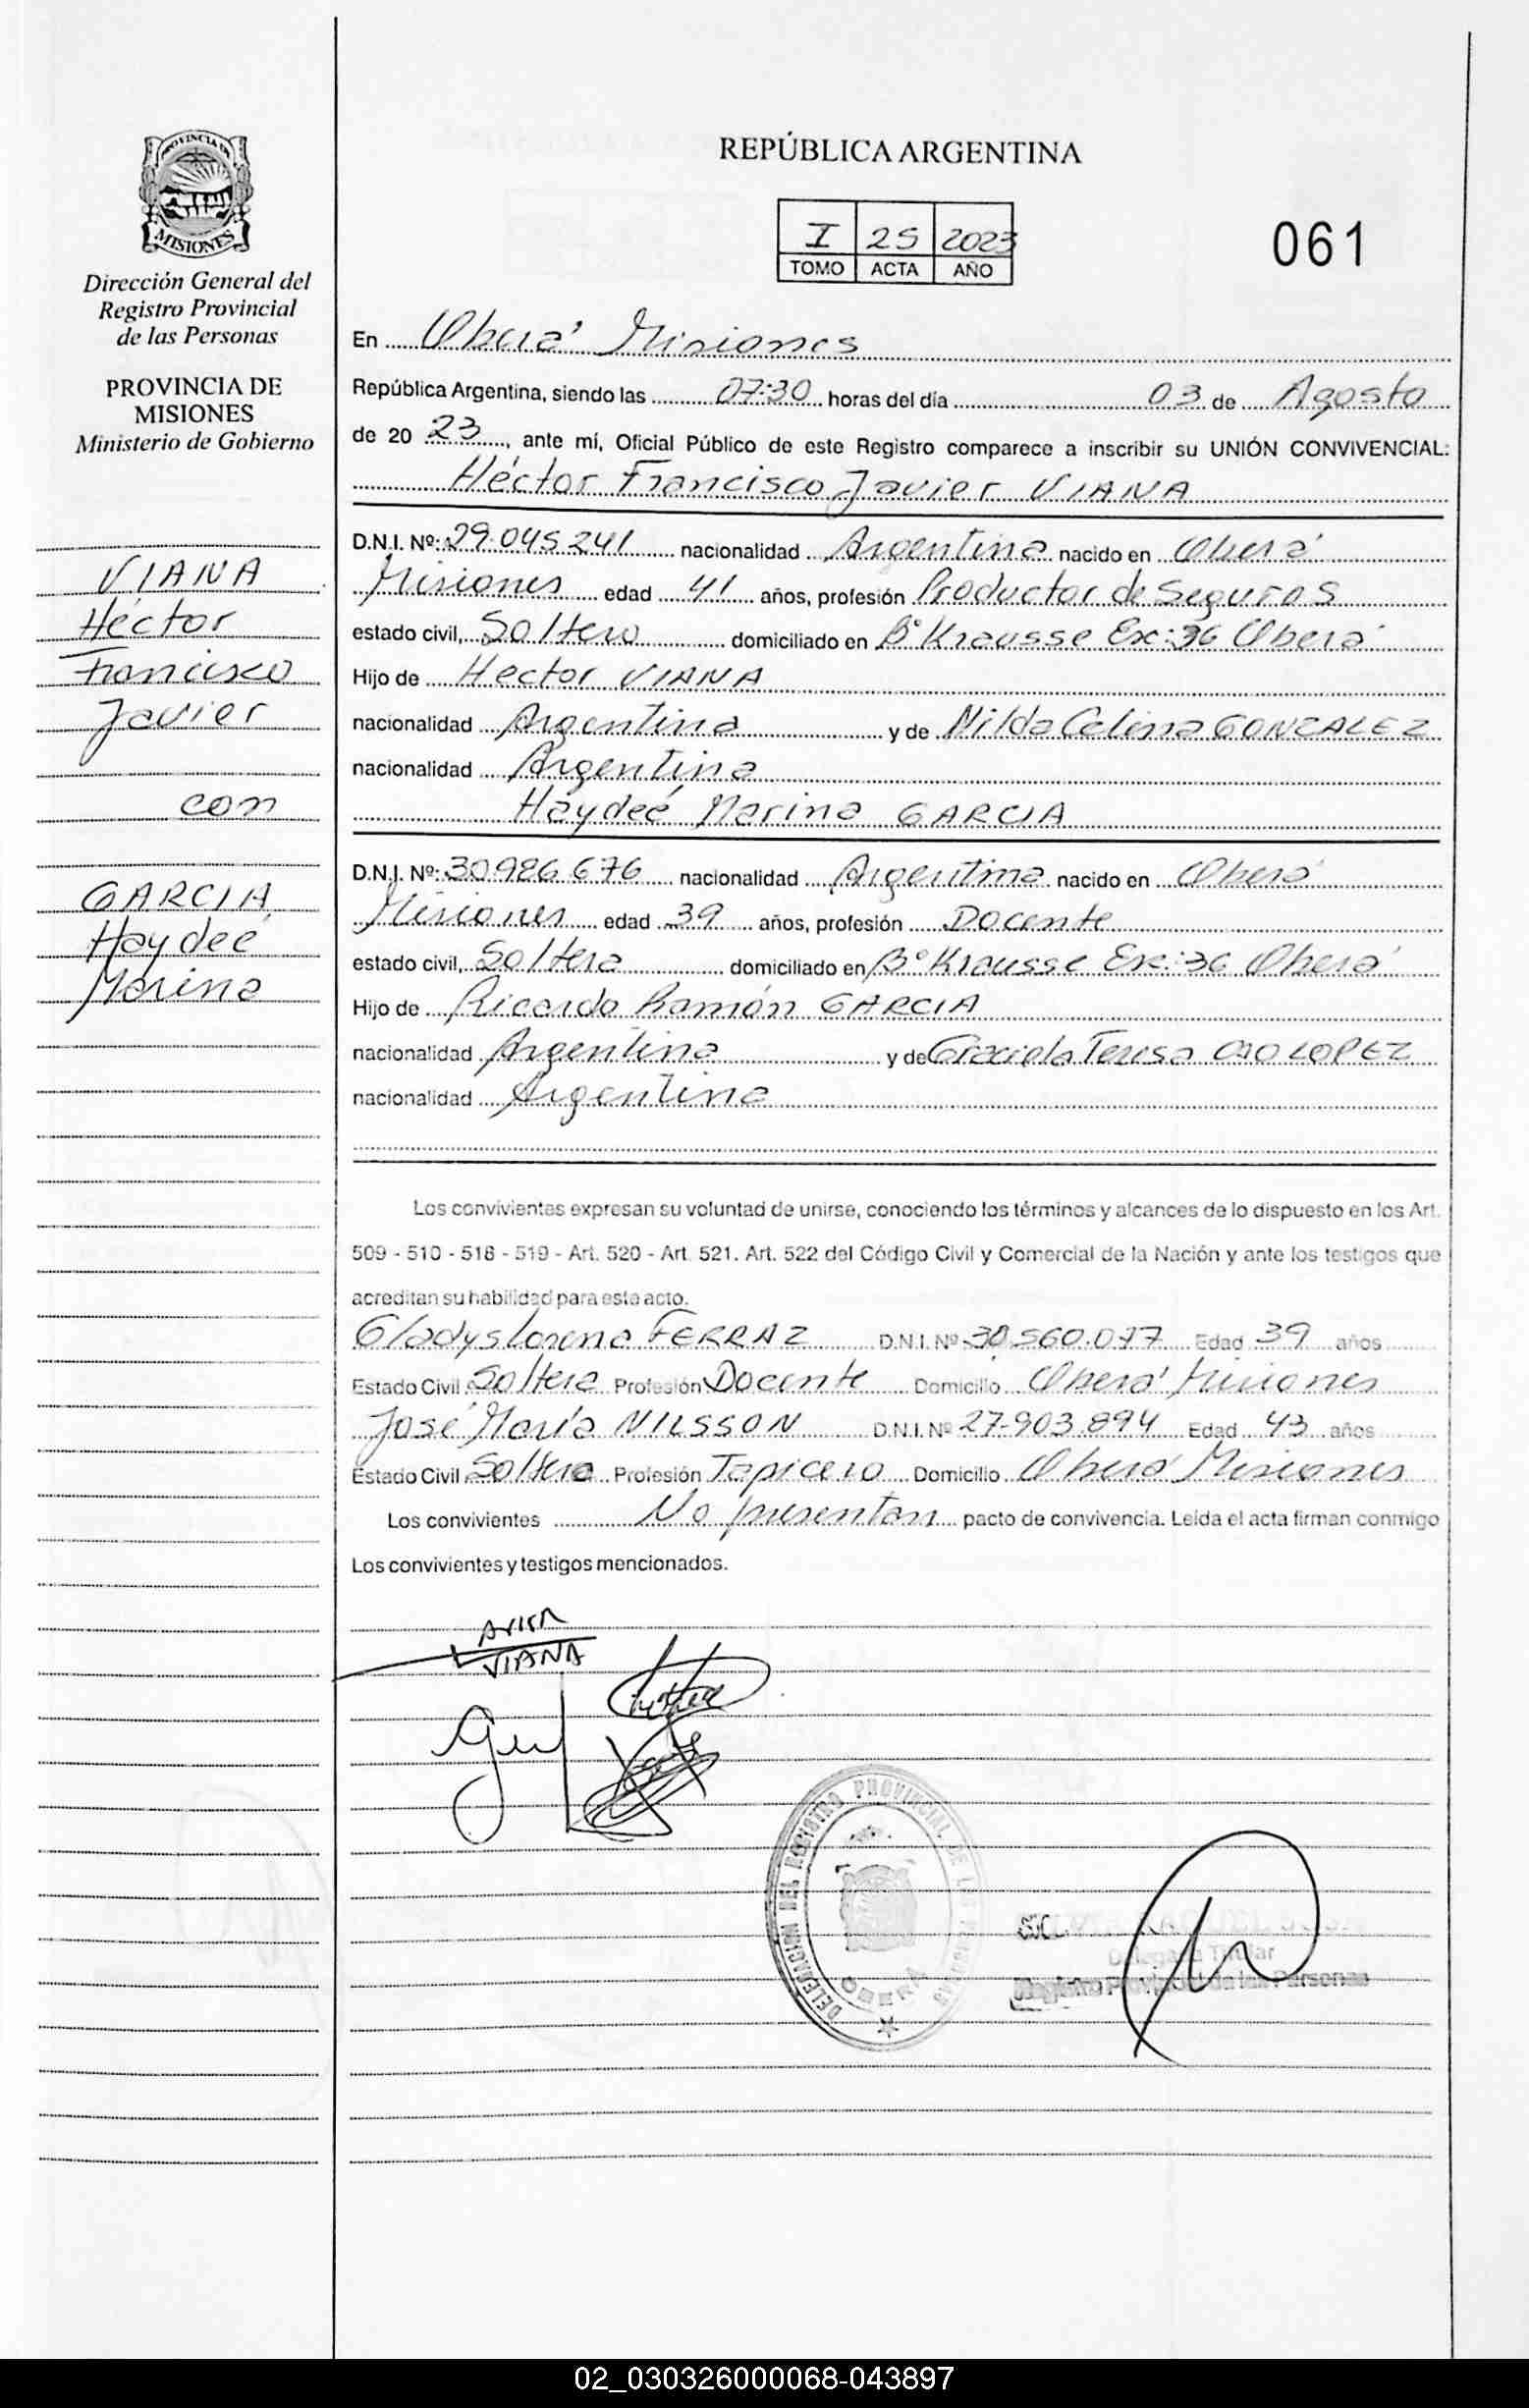 PROVINCIA DE
MISIONES
Dirección General del
Registro Provincial
de las Personas
PROVINCIA DE
MISIONES
Ministerio de Gobierno
VIANA
Héctor
Francisco
Javier
con
GARCIA
Haydeé
Marina
REPÚBLICA ARGENTINA
I 25 2023
TOMO ACTA AÑO
061
En Oberá Misiones
República Argentina, siendo las 07:30 horas del día 03 de Agosto
de 20 23, ante mí, Oficial Público de este Registro comparece a inscribir su UNIÓN CONVIVENCIAL:
Héctor Francisco Javier VIANA
D.N.I. Nº: 29.045241 nacionalidad Argentina nacido en Oberá
Misiones edad 41 años, profesión Productor de Seguros
estado civil, Soltero domiciliado en Bº Krausse Ex: 36 Oberá
Hijo de Hector VIANA
nacionalidad Argentina y de Nilda Celina GONZALEZ
nacionalidad Argentina
Haydeé Marina GARCIA
D.N.I. Nº: 30.986.676 nacionalidad Argentina nacido en Oberá
Misiones edad 39 años, profesión Docente
estado civil, Soltera domiciliado en Bº Krausse Ex: 36 Oberá
Hijo de Ricardo Ramón GARCIA
nacionalidad Argentina y de Graciela Teresa LOPEZ
nacionalidad Argentina
Los convivientes expresan su voluntad de unirse, conociendo los términos y alcances de lo dispuesto en los Art.
509 - 510 - 518 - 519 - Art. 520 - Art. 521. Art. 522 del Código Civil y Comercial de la Nación y ante los testigos que
acreditan su habilidad para este acto.
Gladys Lorena FERRAZ D.N.I. Nº 30.560.077 Edad 39 años
Estado Civil Soltera Profesión Docente Domicilio Oberá Misiones
José María NILSSON D.N.I. Nº 27.903.894 Edad 43 años
Estado Civil Soltero Profesión Tapicero Domicilio Oberá Misiones
Los convivientes No presentan pacto de convivencia. Leída el acta firman conmigo
Los convivientes y testigos mencionados.
VIANA
DELEGACION DEL REGISTRO PROVINCIAL DE LAS PERSONAS
OBERA
Delegada Titular
Registro Provincial de las Personas
02_030326000068-043897